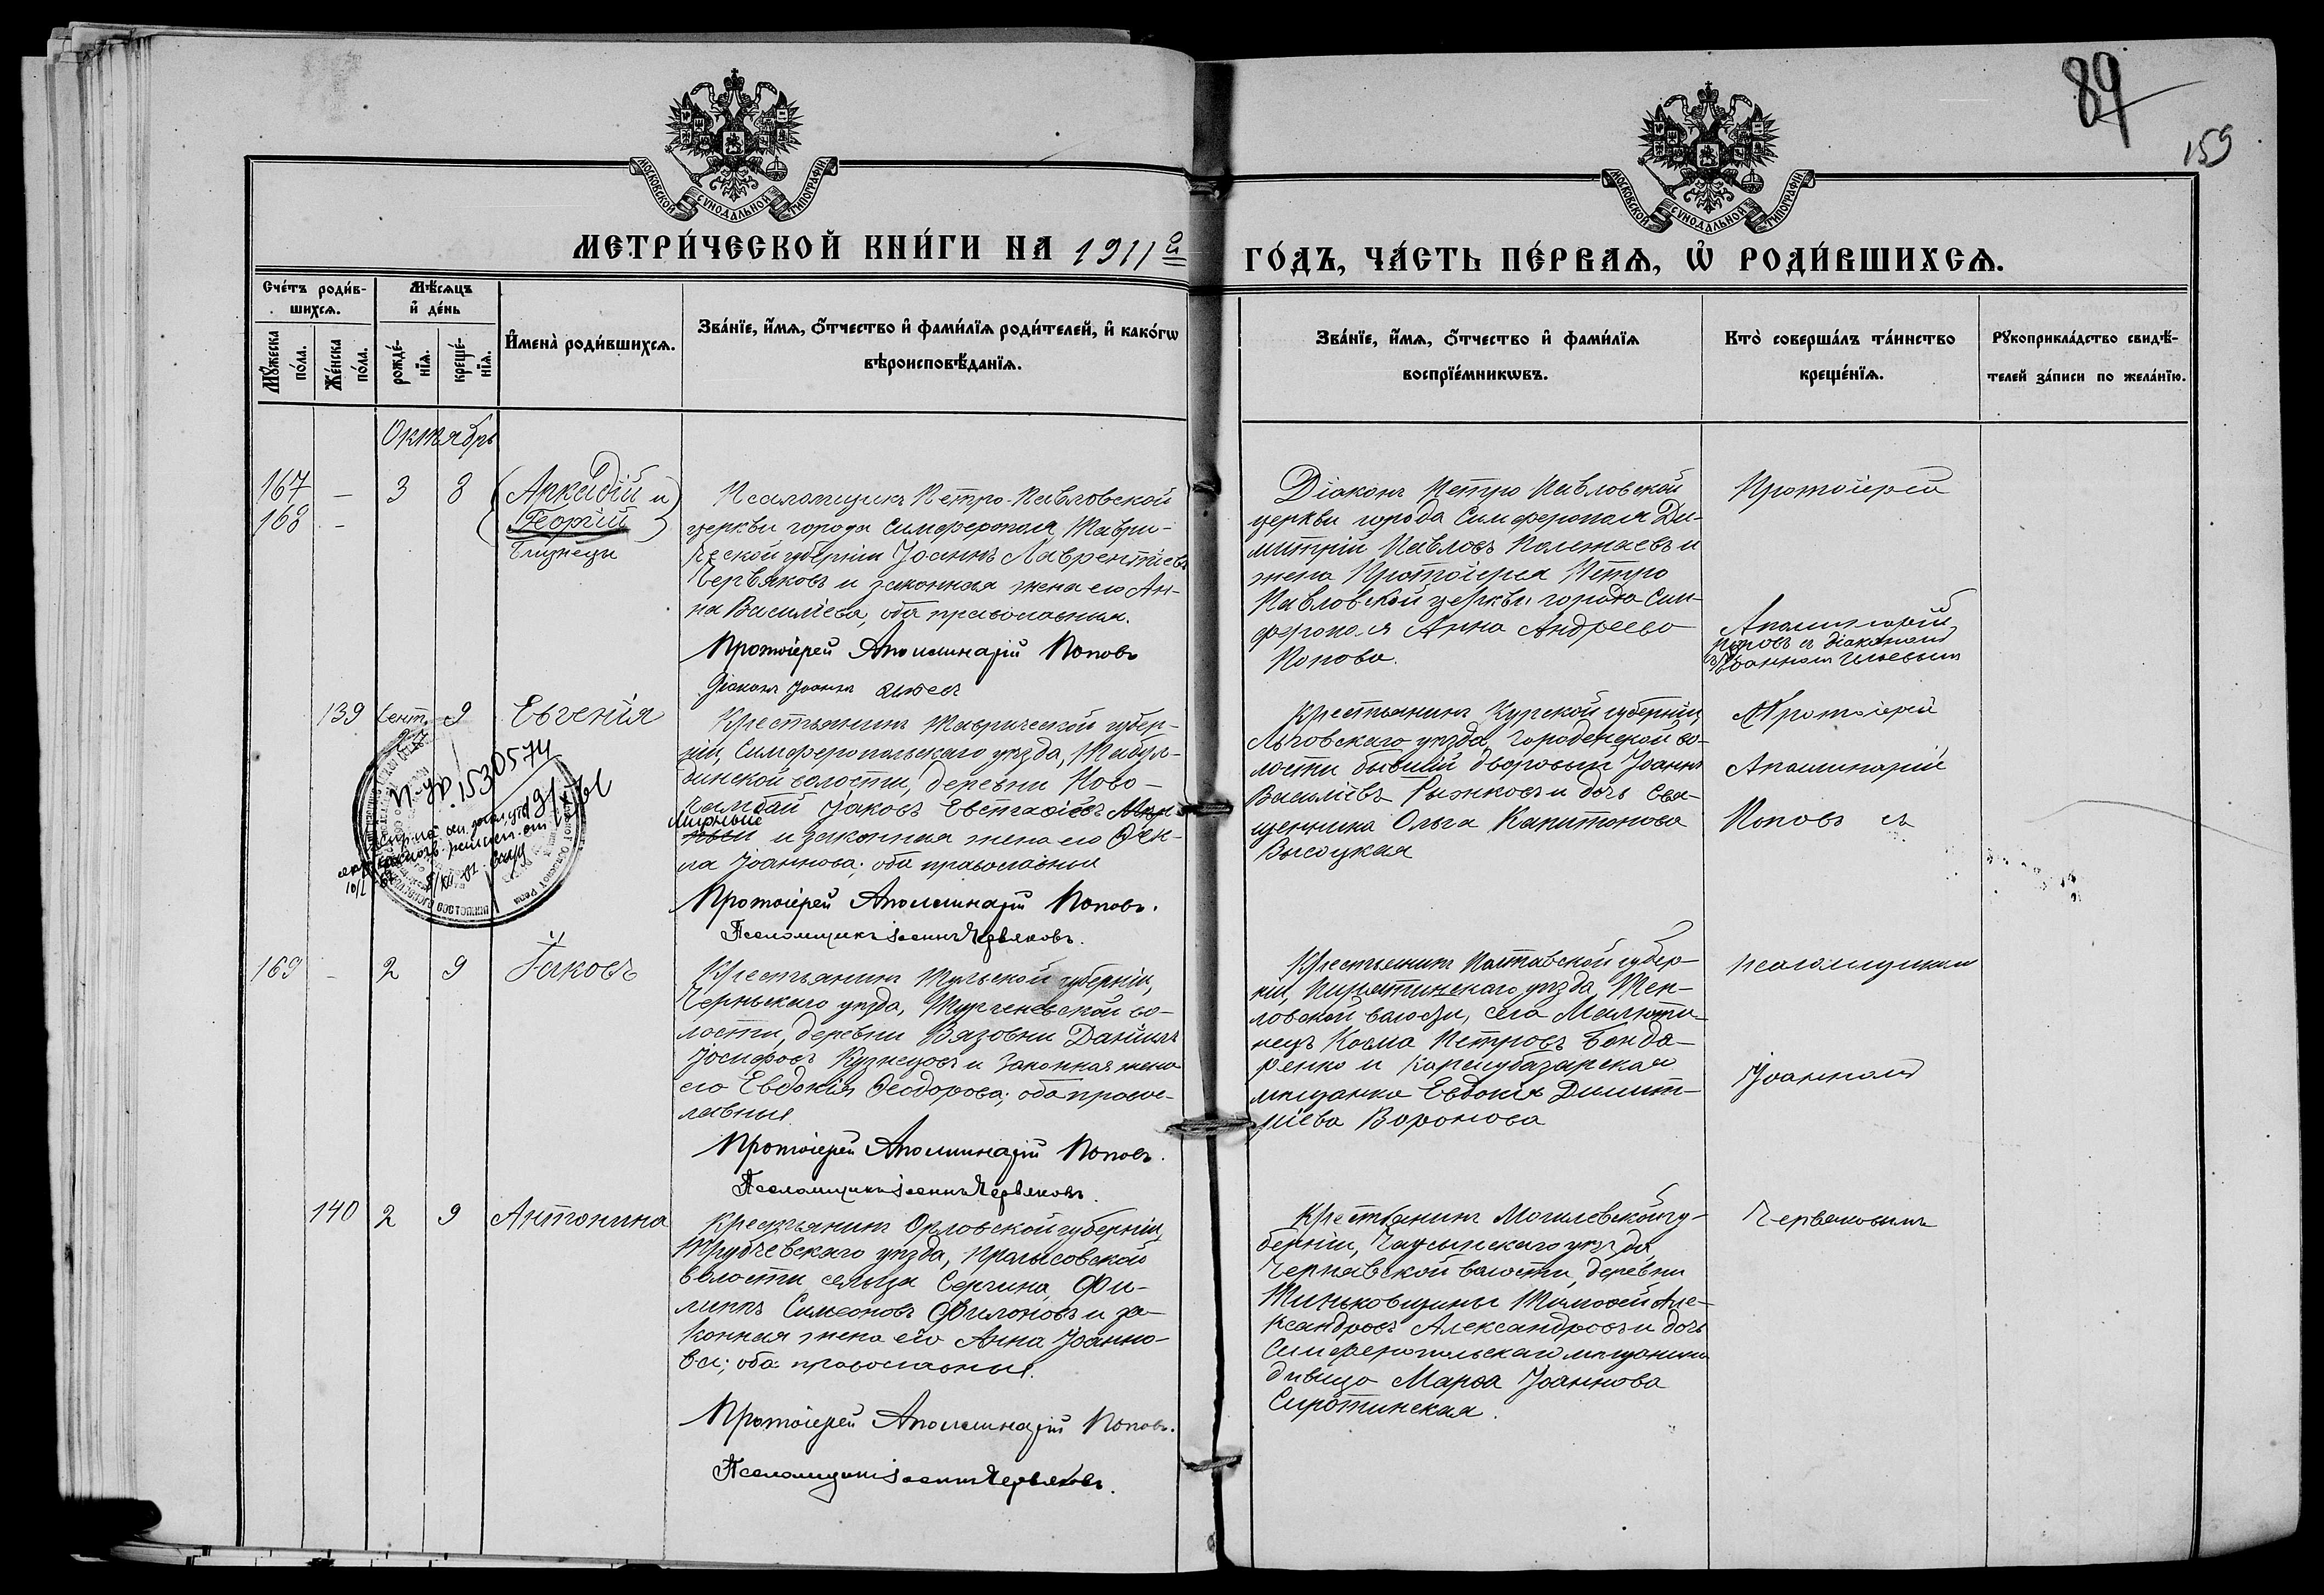 89
159
МОСКОВСКОЙ СѴНОДАЛЬНОЙ ТИПОГРАФІИ
МОСКОВСКОЙ СѴНОДАЛЬНОЙ ТИПОГРАФІИ
МЕТРИ́ЧЕСКОЙ КНИ́ГИ НА 1911й
ГО́ДЪ, ЧА́СТЬ ПЕ́РВАѦ, Ѡ҆ РОДИ́ВШИХСѦ.
Сче́тъ роди́в-
шихсѧ.
Мѣ́сѧцъ
и҆ де́нь
Мꙋ́жеска
по́ла.
Же́нска
по́ла.
рожде́-
нїѧ.
креще́-
нїѧ.
И҆мена̀ роди́вшихсѧ.
Зва́нїе, и҆́мѧ, ѻ҆́тчество и҆ фами́лїѧ роди́телей, и҆ како́гѡ
вѣроисповѣ́данїѧ.
Зва́нїе, и҆́мѧ, ѻ҆́тчество и҆ фами́лїѧ
воспрїе́мникѡвъ.
Кто̀ соверша́лъ та́инство
креще́нїѧ.
Рꙋкоприкла́дство свидѣ́-
телей за́писи по жела́нїю.
Октябрь
167
168
-
-
3
8
Аркадій и
Георгій
Близнецы
Псаломщикъ Петро-Павловской
церкви города Симферополя, Таври-
ческой губерніи Іоаннъ Лаврентіевъ
Червяковъ и законная жена его Ан-
на Василіева, оба православныя.
Протоіерей Аполлинарій Поповъ
Діаконъ Іоаннъ
Діаконъ Петро Павловской
церкви города Симферополя Ди-
митрій Павловъ Полежаевъ и
жена Протоіерея Петро
Павловской церкви города Сим-
ферополя Анна Андреева
Попова.
Протоіерей
Аполлинарій
Поповъ съ діакономъ
Іоанномъ
139
Сент.
9
Евгенія
Крестьянинъ Таврической губер-
ніи, Симферопольскаго уезда, Табул-
динской волости, деревни Ново-
Іаковъ Евстафіевъ
и законная жена его Фек-
ла Іоаннова; оба православныя
Протоіерей Аполлинарій Поповъ.
Псаломщикъ Іоаннъ Червяковъ.
Крестьянинъ Курской губерніи,
Льговскаго уезда, Городенской во-
лости бывшій дворовый Іоаннъ
Василіевъ Рыжковъ и дочь Свя-
щенника Ольга Капитонова
Высоцкая
Протоіерей
Аполлинарій
Поповъ съ
1530574
169
-
2
9
Іаковъ
Крестьянинъ Тульской губерніи,
Черньскаго уезда, Тургеневской во-
лости, деревни Вязовни Даніилъ
Іосифовъ Кузнецовъ и законная жена
его Евдокія Феодорова; оба право-
лавныя.
Протоіерей Аполлинарій Поповъ.
Псаломщикъ Іоаннъ Червяковъ.
Крестьянинъ Полтавской губер-
ніи, Пирятинскаго уезда, Теп-
ловской волости, села Малюти-
нецъ Косма Петровъ Бонда-
ренко и Карасубазарская
мещанка Евдокія Димит-
ріева Воронова
псаломщикомъ
Іоанномъ
140
2
9
Антонина
Крестьянинъ Орловской губерніи,
Трубчевскаго уезда, Пролысовской
волости сельца Сергина, Фи-
липпъ Симеоновъ Филоновъ и за-
конная жена его Анна Іоанно-
ва; оба православныя.
Протоіерей Аполлинарій Поповъ.
Псаломщикъ Іоаннъ Червяковъ.
Крестьянинъ Могилевской гу-
берніи, Чаусынскаго уезда,
Чернявской волости, деревни
Тиньковщины Тимофей Але-
ксандровъ Александровъ и дочь
Симферопольскаго мещанина
девица Марфа Іоаннова
Сиротинская.
Червяковымъ